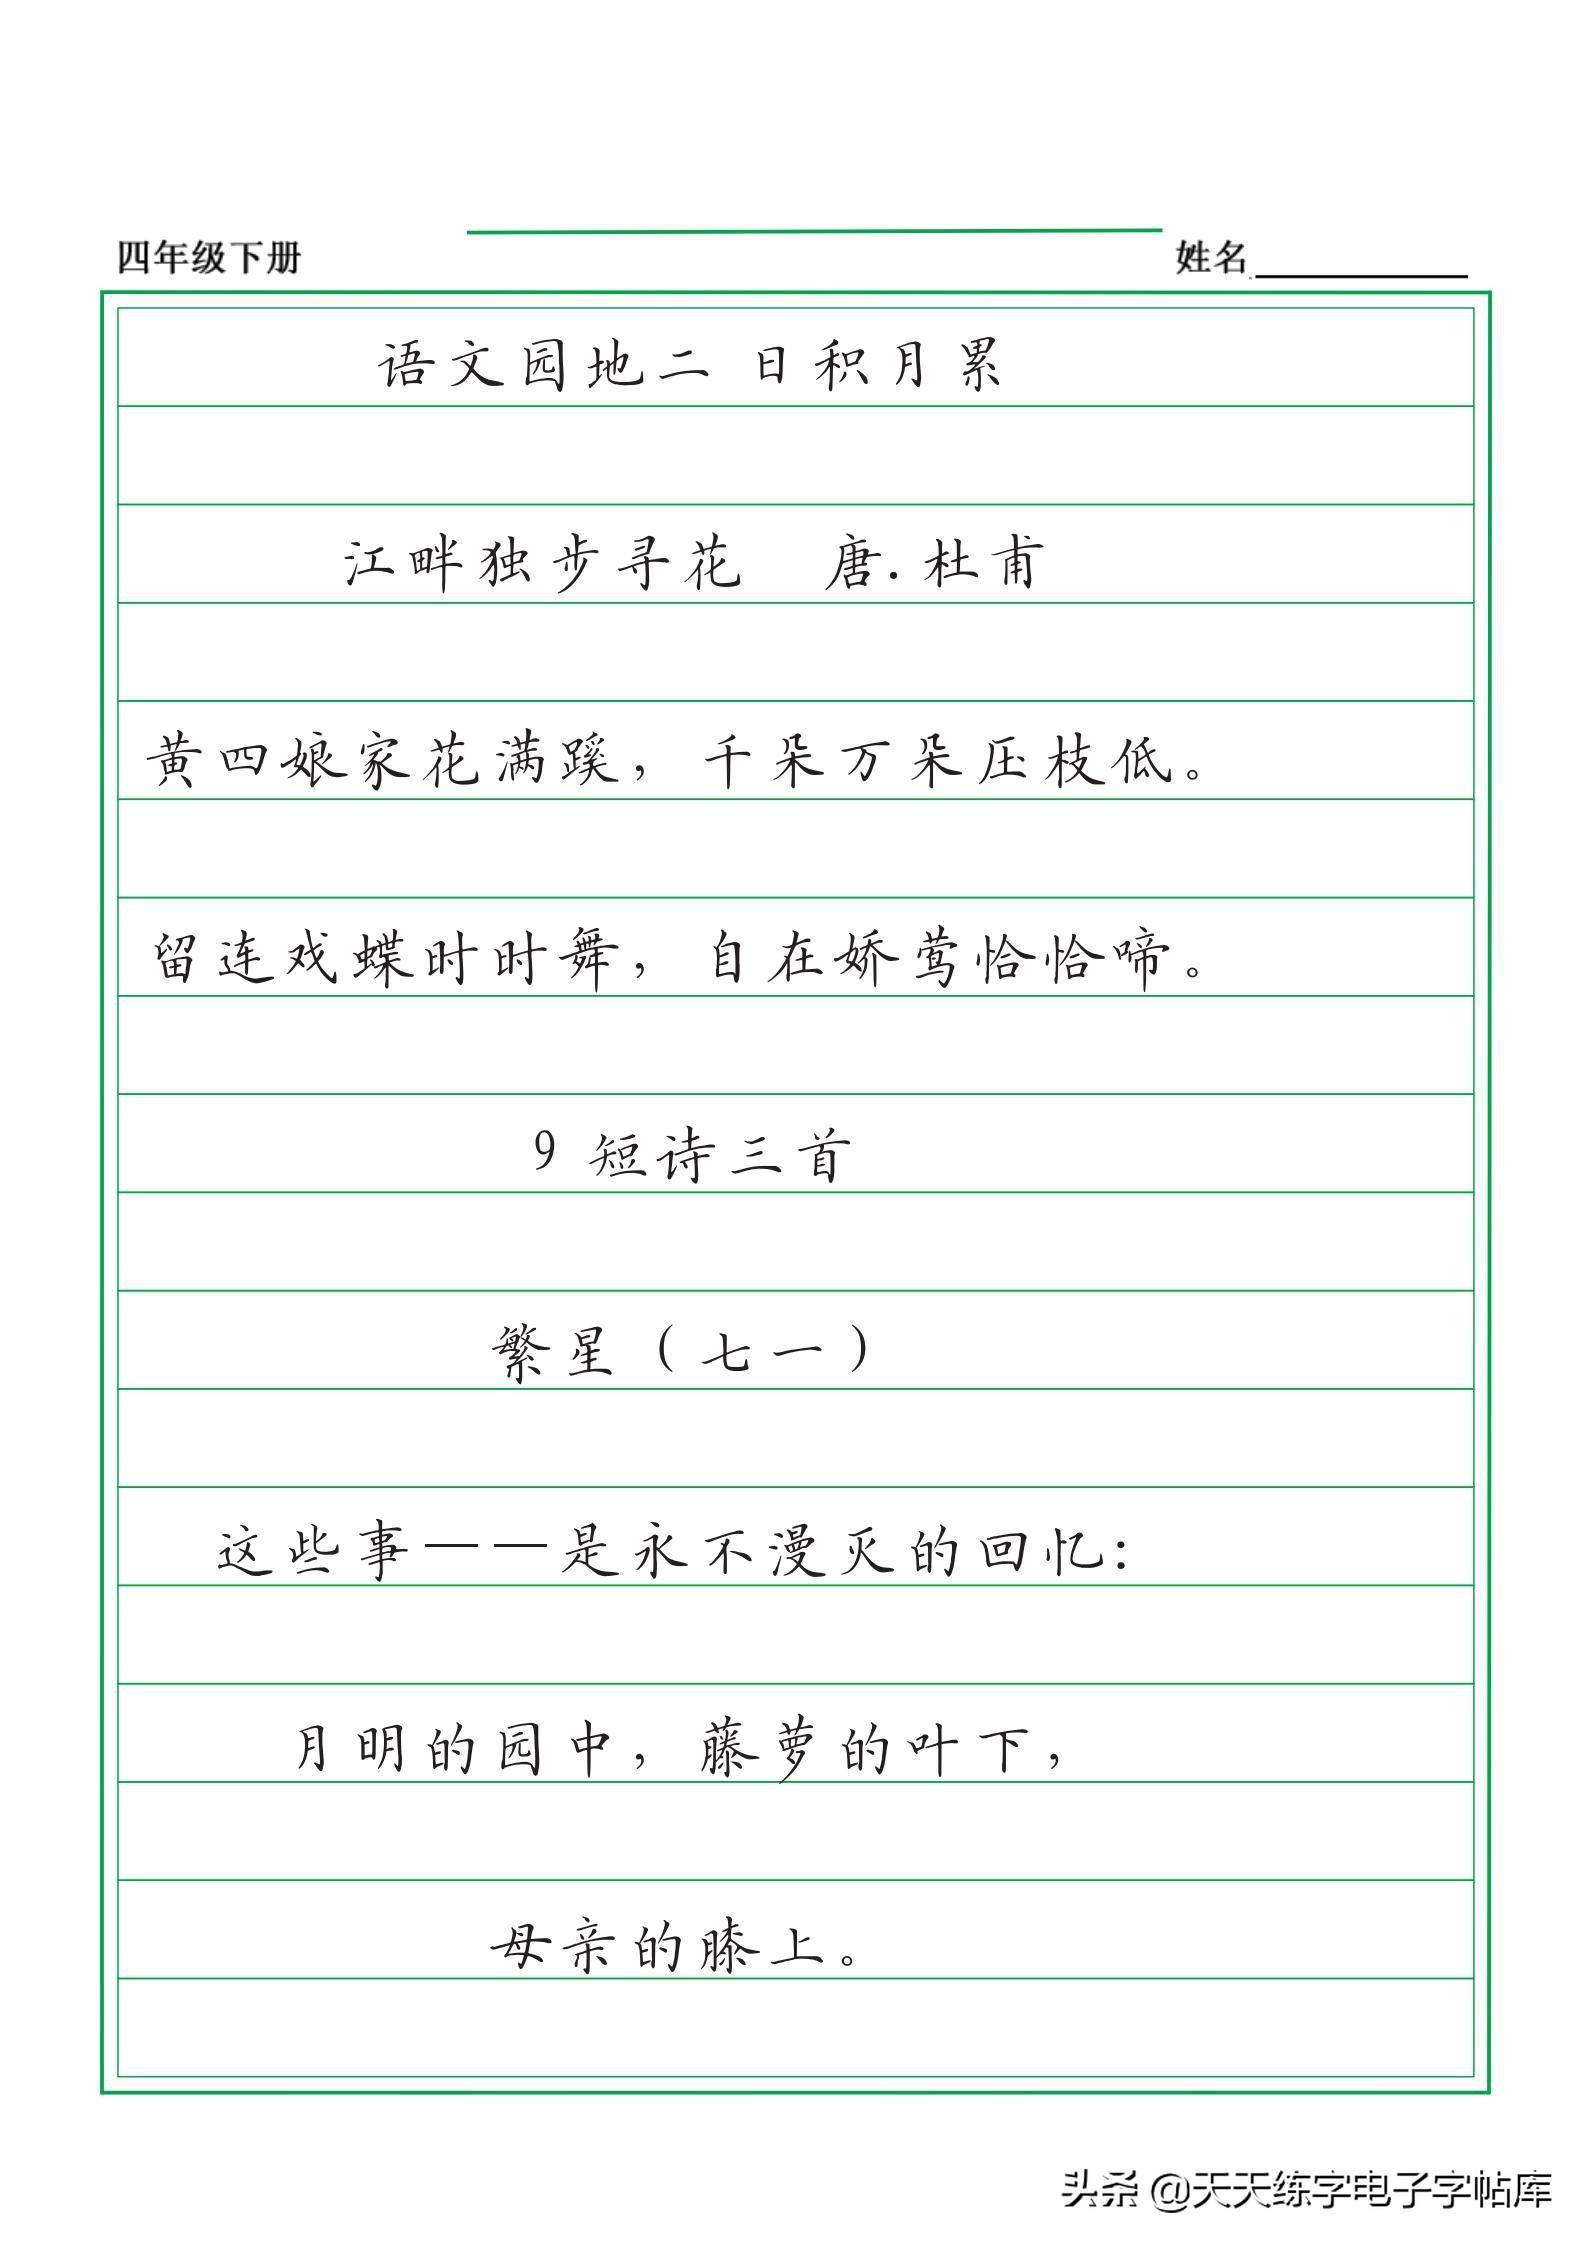 四年级下册 姓名
语文园地二 日积月累
江畔独步寻花 唐.杜甫
黄四娘家花满蹊，千朵万朵压枝低。
留连戏蝶时时舞，自在娇莺恰恰啼。
9 短诗三首
繁星（七一）
这些事——是永不漫灭的回忆：
月明的园中，藤萝的叶下，
母亲的膝上。
头条 @天天练字电子字帖库